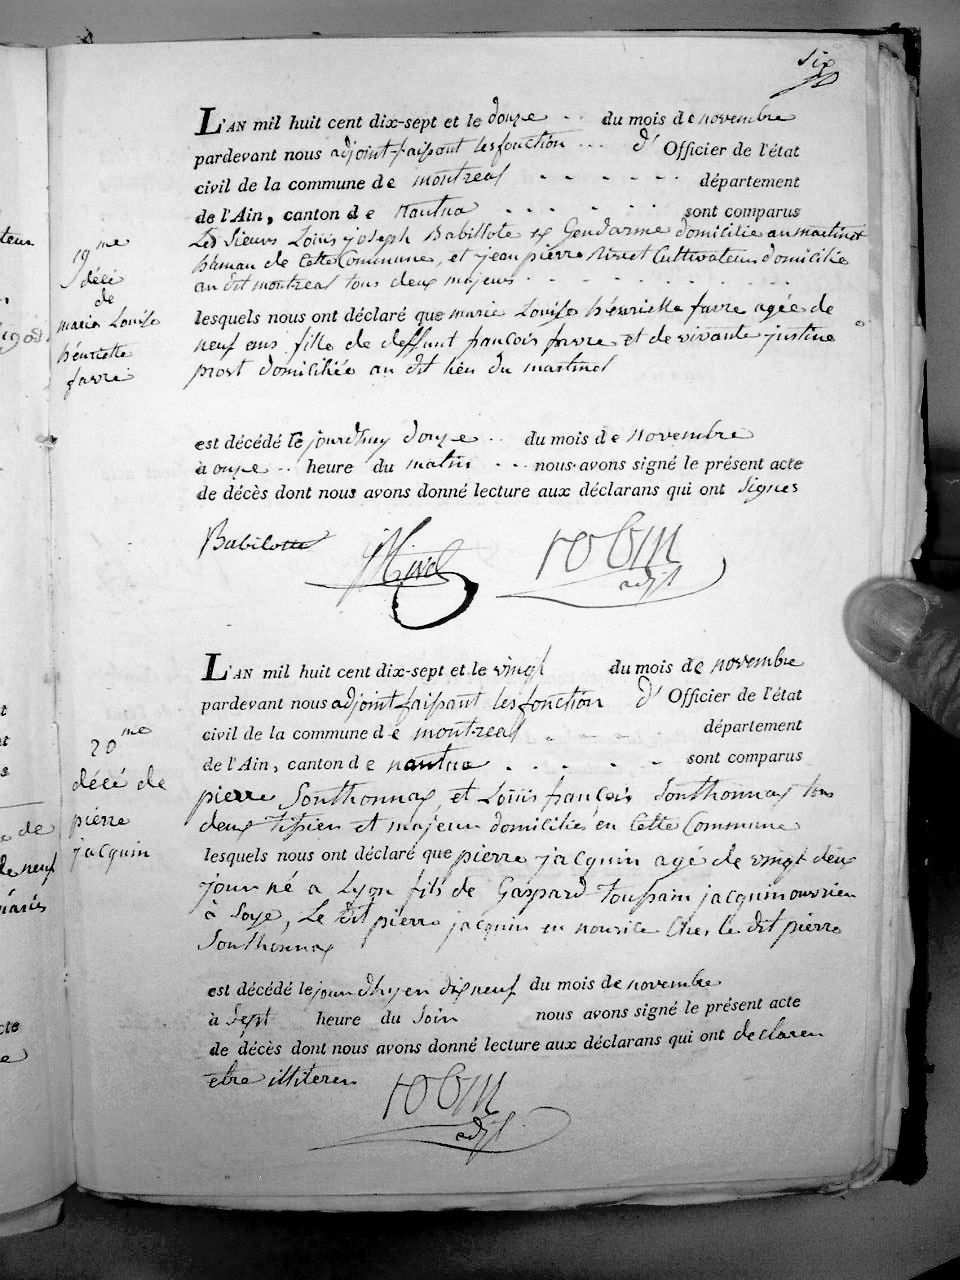 six
L'AN mil huit cent dix-sept et le douze du mois de novembre
pardevant nous adjoint faisant les fonction d' Officier de l'état
civil de la commune de montreal département
de l'Ain, canton de Nantua sont comparus
Les Sieurs Louis joseph Babillote ex Gendarme domicilie au martinet
hameau de cette Commune, et jean pierre Cultivateur domicilie
au dit montreal tous deux majeurs
lesquels nous ont déclaré que marie Louise henriette favre agée de
neuf ans fille de deffunt francois favre et de vivante justine
prost domiciliée au dit lieu du martinet
19me
décé
de
marie Louise
henriette
favre
est décédé le jourdhuy douze du mois de novembre
à onze heure du matin nous avons signé le présent acte
de décès dont nous avons donné lecture aux déclarans qui ont signes
Babilotte
robin
adjt
L'AN mil huit cent dix-sept et le vingt du mois de novembre
pardevant nous adjoint faisant les fonction d' Officier de l'état
civil de la commune de montreal département
de l'Ain, canton de nantua sont comparus
pierre Sonthonnax, et Louis françois Sonthonnax tous
deux tissien et majeur domiciliés en cette Commune
lesquels nous ont déclaré que pierre jacquin agé de vingt deux
jour né a Lyon fils de Gaspard toussain jacquin ouvrier
à soye, Le dit pierre jacquin en nourice ches le dit pierre
Sonthonnax
20me
décé de
pierre
jacquin
est décédé le jour dhyer dix neuf du mois de novembre
à sept heure du soir nous avons signé le présent acte
de décès dont nous avons donné lecture aux déclarans qui ont declaren
etre illiteren
robin
adjt